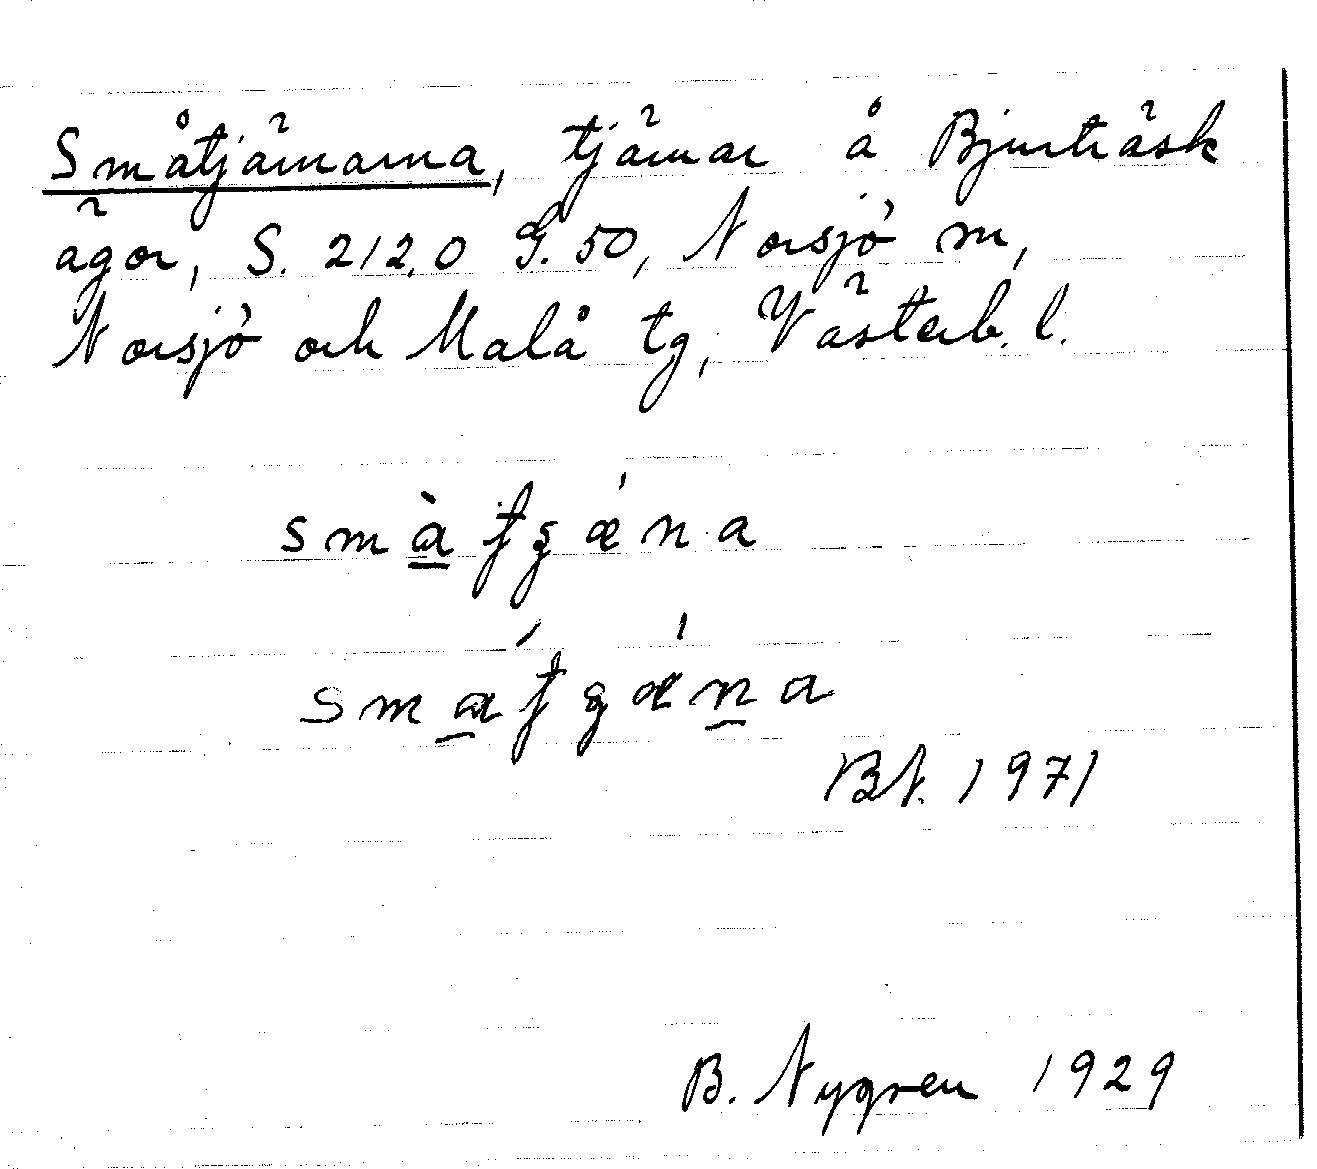 Småtjärnarna, tjärnar å Bjurträsk
ägor, S. 212,0 G. 50, Norsjö sn,
Norsjö och Malå tg, Västerb. l.
BN. 1971
B. Nygren 1929